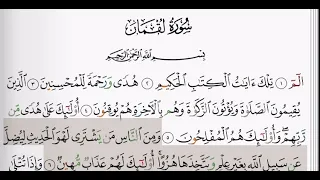 سُورَةُ لُقْمَان
بِسْمِ اللَّهِ الرَّحْمَٰنِ الرَّحِيمِ
الٓمٓ ١ تِلْكَ ءَايَٰتُ الْكِتَٰبِ الْحَكِيمِ ٢ هُدًى وَرَحْمَةً لِّلْمُحْسِنِينَ ٣ الَّذِينَ
يُقِيمُونَ الصَّلَوٰةَ وَيُؤْتُونَ الزَّكَوٰةَ وَهُم بِالْءَاخِرَةِ هُمْ يُوقِنُونَ ٤ أُو۟لَٰٓئِكَ عَلَىٰ هُدًى مِّن
رَّبِّهِمْ وَأُو۟لَٰٓئِكَ هُمُ الْمُفْلِحُونَ ٥ وَمِنَ النَّاسِ مَن يَشْتَرِى لَهْوَ الْحَدِيثِ لِيُضِلَّ
عَن سَبِيلِ اللَّهِ بِغَيْرِ عِلْمٍ وَيَتَّخِذَهَا هُزُوًا أُو۟لَٰٓئِكَ لَهُمْ عَذَابٌ مُّهِينٌ ٦ وَإِذَا تُتْلَىٰ